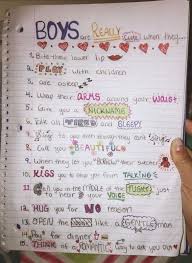 BOYS are REALLY Cute when they...
1. Bite their lower lip
2. PLAY with children
3. are asleep
4. Wrap their ARMS around your WAIST
5. Give you a NICKNAME
6. Talk all TIRED and SLEEPY
7. to you even though they can't
8. Call you BEAUTIFUL
9. When they let you their sweater
10. KISS you to stop you from TALKING
11. Call you in the MIDDLE of the NIGHT just to hear your VOICE
12. HUG you for NO reason
13. OPEN the like a GENTLEMAN
14. Pay for dinner
15. THINK of a ROMANTIC way to ask you out